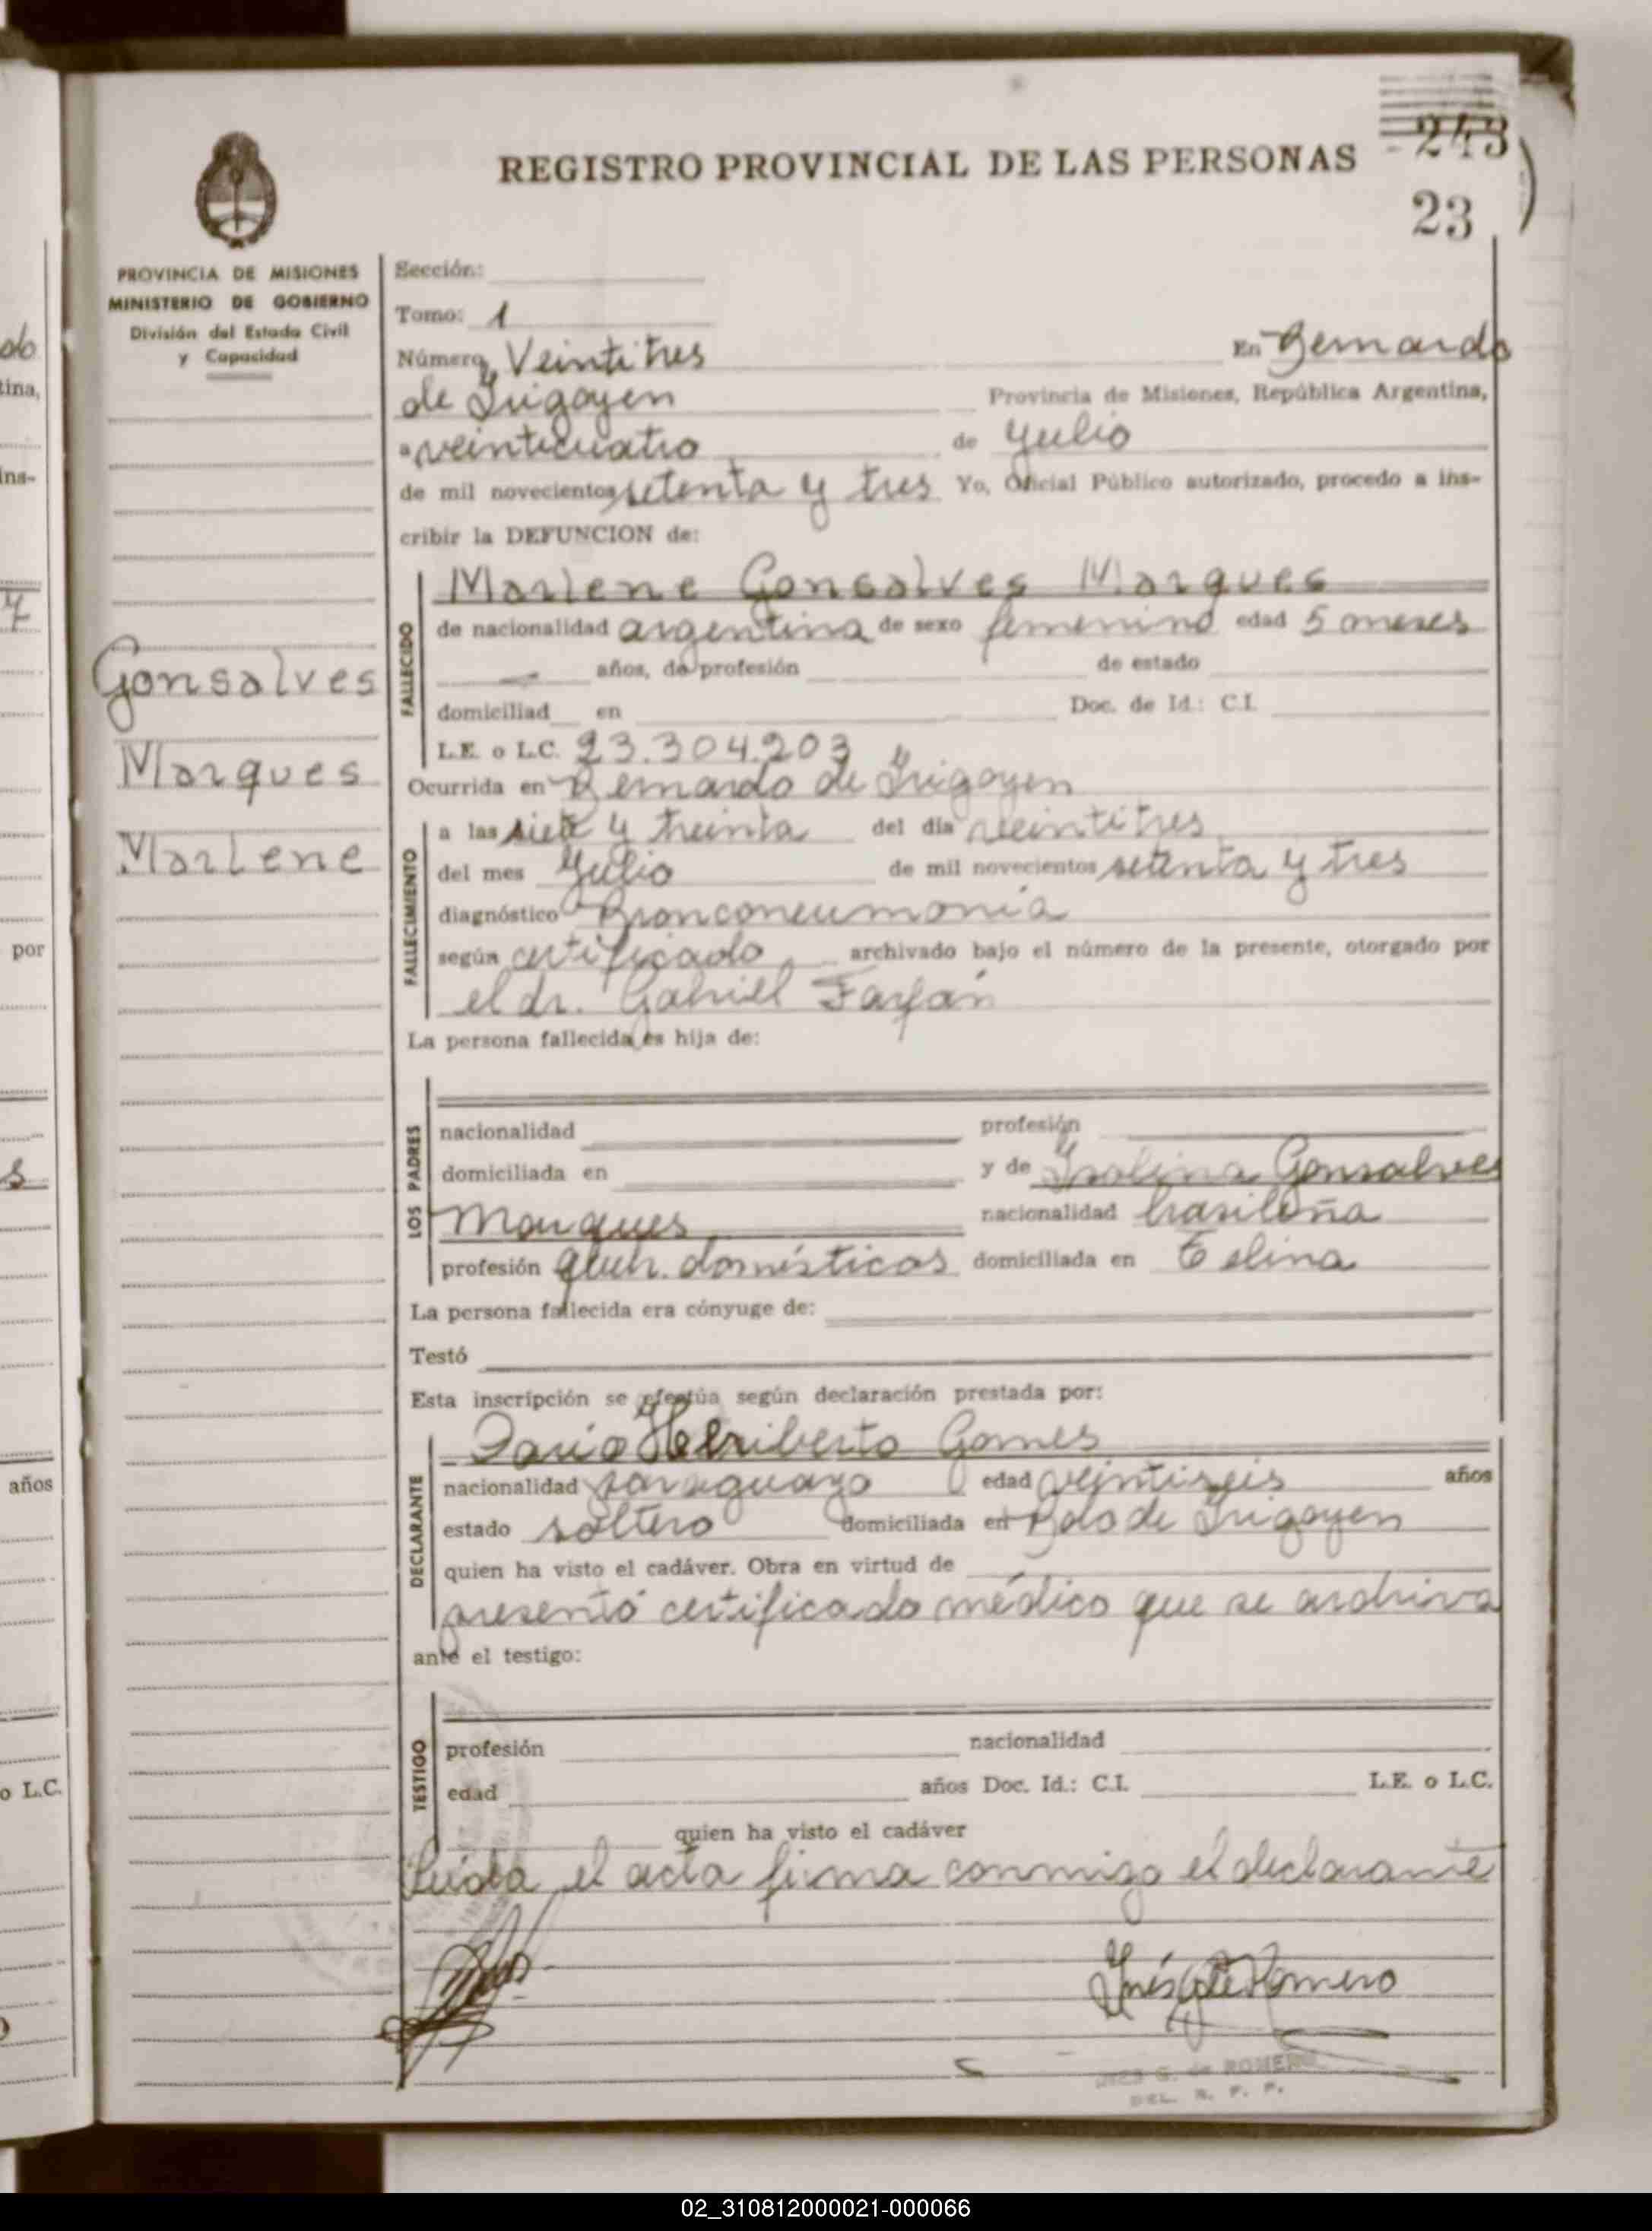 243
REGISTRO PROVINCIAL DE LAS PERSONAS
23
PROVINCIA DE MISIONES
MINISTERIO DE GOBIERNO
División del Estado Civil
y Capacidad
Gonsalves
Marques
Marlene
Sección:
Tomo: 1
Número, Veintitres En Bernardo
de Irigoyen Provincia de Misiones, República Argentina,
a veinticuatro de Julio
de mil novecientos setenta y tres Yo, Oficial Público autorizado, procedo a ins-
cribir la DEFUNCION de:
FALLECIDO
Marlene Gonsalves Marques
de nacionalidad argentina de sexo femenino edad 5 meses
años, de profesión de estado
domiciliad en Doc. de Id.: C.I.
L.E. o L.C. 23.304.203
Ocurrida en Bernardo de Irigoyen
FALLECIMIENTO
a las siete y treinta del día veintitres
del mes Julio de mil novecientos setenta y tres
diagnóstico Bronconeumonía
según certificado archivado bajo el número de la presente, otorgado por
el dr. Gabriel Farfán
La persona fallecida es hija de:
LOS PADRES
nacionalidad profesión
domiciliada en y de Isolina Gonsalves
Marques nacionalidad brasileña
profesión queh. domésticos domiciliada en
La persona fallecida era cónyuge de:
Testó
Esta inscripción se efectúa según declaración prestada por:
DECLARANTE
Dario Heriberto Gomes
nacionalidad paraguayo edad veintiseis años
estado soltero domiciliada en Bdo de Irigoyen
quien ha visto el cadáver. Obra en virtud de
presentó certificado médico que se archiva
ante el testigo:
TESTIGO
profesión nacionalidad
edad años Doc. Id.: C.I. L.E. o L.C.
quien ha visto el cadáver
Leída el acta firma conmigo el declarante
Inés G de Romero
INES G. de ROMERO
DEL. R. P. P.
ob
tina,
ins-
por
años
o L.C.
02_310812000021-000066